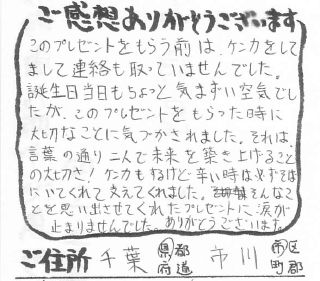 ご感想ありがとうございます
このプレゼントをもらう前は、ケンカをして
まして連絡も取っていませんでした。
誕生日当日もちょっと気まずい空気でし
たが、このプレゼントをもらった時に
大切なことに気づかされました。それは、
言葉の通り二人で未来を築き上げること
の大切さ！ケンカもするけど辛い時は必ずそば
にいてくれて支えてくれました。そんなこ
とを思い出させてくれたプレゼントに涙が
止まりませんでした。ありがとうございます。
ご住所 千葉 都道府県 市川 市区町郡